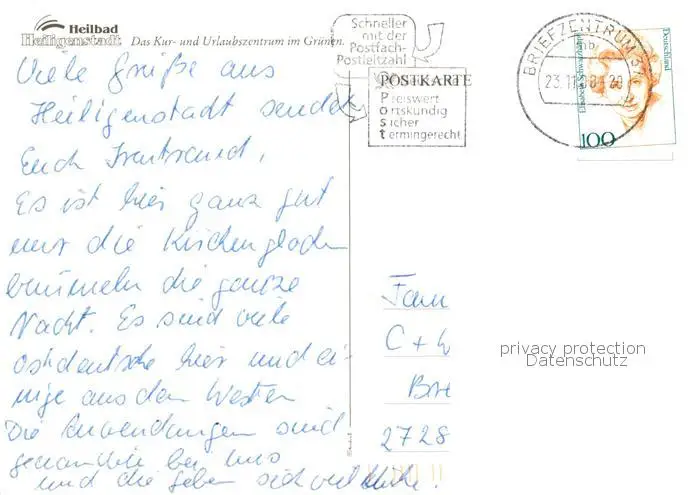 Heilbad
Heiligenstadt Das Kur- und Urlaubszentrum im Grünen.
Schneller
mit der
Postfach-
Postleitzahl
POSTKARTE
Preiswert
Ortskundig
Sicher
termingerecht
BRIEFZENTRUM 37
mb
23.11.
Elisabeth Schwarzhaupt
Deutschland
100
Viele Grüße aus
Heiligenstadt sendet
Euch Irmtraud,
Es ist hier ganz gut
nur die Kirchenglocken
bimmeln die ganze
Nacht. Es sind viele
ostdeutsche hier und ei-
nige aus dem Westen
Die Anwendungen sind
genau wie bei uns
und die geben sich viel Mühe.
Fam
C + W
Bre
2728
privacy protection
Datenschutz